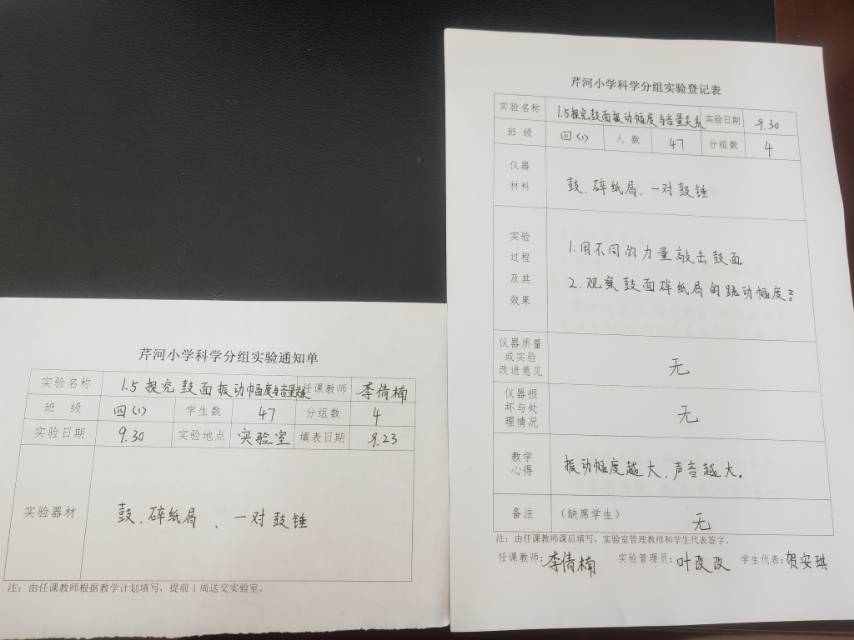 芹河小学科学分组实验通知单
实验名称 1.5探究鼓面振动幅度与音量关系 任课教师 李倩楠
班 级 四(1) 学生数 47 分组数 4
实验日期 9.30 实验地点 实验室 填表日期 9.23
实验器材 鼓、碎纸屑、一对鼓锤
注：由任课教师根据教学计划填写，提前1周送交实验室。
芹河小学科学分组实验登记表
实验名称 1.5探究鼓面振动幅度与音量关系 实验日期 9.30
班 级 四(1) 人 数 47 分组数 4
仪器
材料
鼓、碎纸屑、一对鼓锤
实验
过程
及其
效果
1.用不同的力量敲击鼓面
2.观察鼓面碎纸屑的跳动幅度
仪器质量
或实验
改进意见
无
仪器损
坏与处
理情况
无
教学
心得
振动幅度越大、声音越大。
备注 （缺席学生） 无
注：由任课教师课后填写，实验室管理教师和学生代表签字。
任课教师：李倩楠 实验管理员：叶改改 学生代表：贺安琪